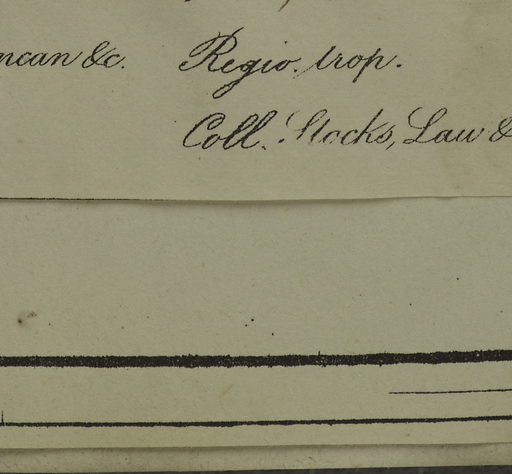 ncan &c. Regio. trop.
Coll. Stocks, Law &